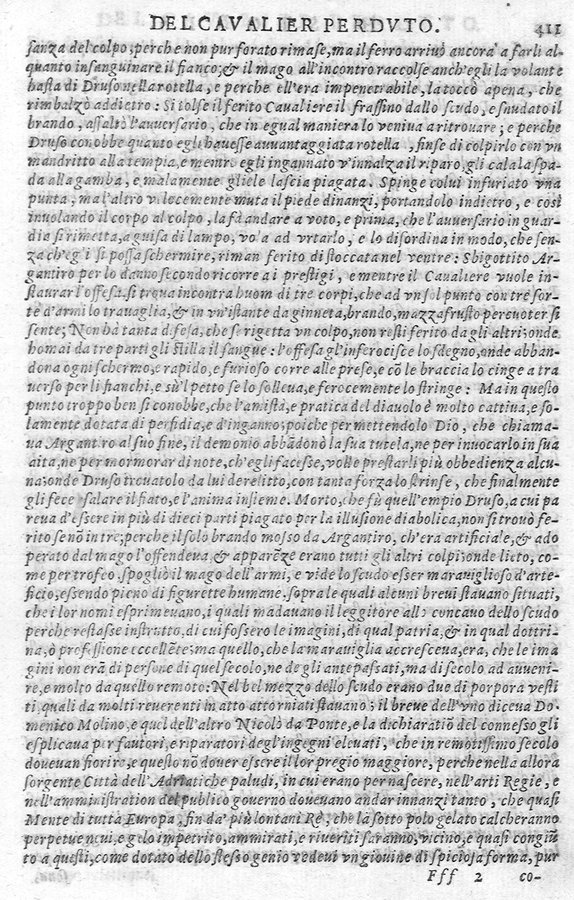 DEL CAVALIER PERDVTO. 411
sanza del colpo; perche non pur forato rimase, ma il ferro arriuò ancora à farli al-
quanto insanguinare il fianco; & il mago all'incontro raccolse anch'egli la volante
hasta di Druso nella rotella, e perche ell'era impenetrabile, la toccò apena, che
rimbalzò addietro: Si tolse il ferito Caualiere il frassino dallo scudo, e snudato il
brando, assaltò l'auuersario, che in egual maniera lo veniua a ritrouare; e perche
Druso conobbe quanto egli hauesse auuantaggiata rotella, finse di colpirlo con vn
mandritto alla tempia, e mentre egli ingannato v'innalza il riparo, gli cala la spa-
da alla gamba, e malamente gliele lascia piagata. Spinge colui infuriato vna
punta, ma l'altro velocemente muta il piede dinanzi, portandolo indietro, e così
inuolando il corpo al colpo, la fà andare a voto, e prima, che l'auuersario in guar-
dia si rimetta, a guisa di lampo, vo'a ad vrtarlo, e lo disordina in modo, che sen-
za ch'egli si possa schermire, riman ferito di stoccata nel ventre: Sbigottito Ar-
gantiro per lo danno secondo ricorre a i prestigi, e mentre il Caualiere vuole in-
staurar l'offesa si troua incontra huom di tre corpi, che ad vn sol punto con tre sor-
te d'armi lo trauaglia, & in vn'istante da ginneta, brando, mazzafrusto percuoter si
sente; Non hà tanta difesa, che se rigetta vn colpo, non resti ferito da gli altri; onde
homai da tre parti gli stilla il sangue: l'offesa gl'inferocisce lo sdegno, onde abban-
dona ogni schermo, e rapido, e furioso corre alle prese, e cõ le braccia lo cinge a tra
uerso per li fianchi, e sù'l petto se lo solleua, e ferocemente lo stringe: Ma in questo
punto troppo ben si conobbe, che l'amistà, e pratica del diauolo è molto cattiua, e so-
lamente dotata di perfidia, e d'inganno; poiche permettendolo Dio, che chiama-
ua Argantiro al suo fine, il demonio abbãdonò la sua tutela, ne per inuocarlo in sua
aita, ne per mormorar di note, ch'egli facesse, volle prestarli più obbedienza alcu-
na; onde Druso trouatolo da lui derelitto, con tanta forza lo strinse, che finalmente
gli fece esalare il fiato, e l'anima insieme. Morto, che fù quell'empio Druso, a cui pa
reua d'essere in più di dieci parti piagato per la illusione diabolica, non si trouò fe-
rito se nõ in tre; perche il solo brando mosso da Argantiro, ch'era artificiale, & ado
perato dal mago l'offendeua, & apparẽze erano tutti gli altri colpi; onde lieto, co-
me per trofeo spogliò il mago dell'armi, e vide lo scudo esser marauiglioso d'arte-
ficio, essendo pieno di figurette humane. sopra le quali alcuni breui stauano situati,
che i lor nomi esprimeuano, i quali mãdauano il leggitore allo concauo dello scudo
perche restasse instrutto, di cui fossero le imagini, di qual patria, & in qual dottri-
na, ò professione eccellẽte; ma quello, che la marauiglia accresceua, era, che le ima
gini non erã di persone di quel secolo, ne degli antepassati, ma di secolo ad auueni-
re, e molto da quello remoto: Nel bel mezzo dello scudo erano due di porpora vesti
ti, quali da molti reuerenti in atto attorniati stauano; il breue dell'vno diceua Do-
menico Molino, e quel dell'altro Nicolò da Ponte, e la dichiaratiõ del connesso gli
esplicaua per fautori, e riparatori degl'ingegni eleuati, che in remotissimo secolo
doueuan fiorire, e questo nõ douer essere il lor pregio maggiore, perche nella allora
sorgente Città dell'Adriatiche paludi, in cui erano per nascere, nell'arti Regie, e
nell'amministration del publico gouerno doueuano andar innanzi tanto, che quasi
Mente di tutta Europa, fin da' più lontani Rè, che là sotto polo gelato calcheranno
perpetue neui, e gelo impetrito, ammirati, e riueriti saranno, vicino, e quasi congiũ
to a questi, come dotato dello stesso genio vedeui vn giouine di spiciosa forma, pur
Fff 2 co-